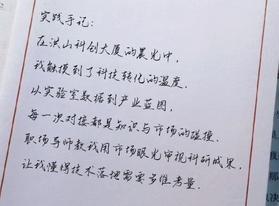 实践手记：
在洪山科创大厦的晨光中，
我触摸到了科技转化的温度．
从实验室数据到产业蓝图，
每一次对接都是知识与市场的碰撞．
职场导师教我用市场眼光审视科研成果，
让我懂得技术落地需要多维考量．